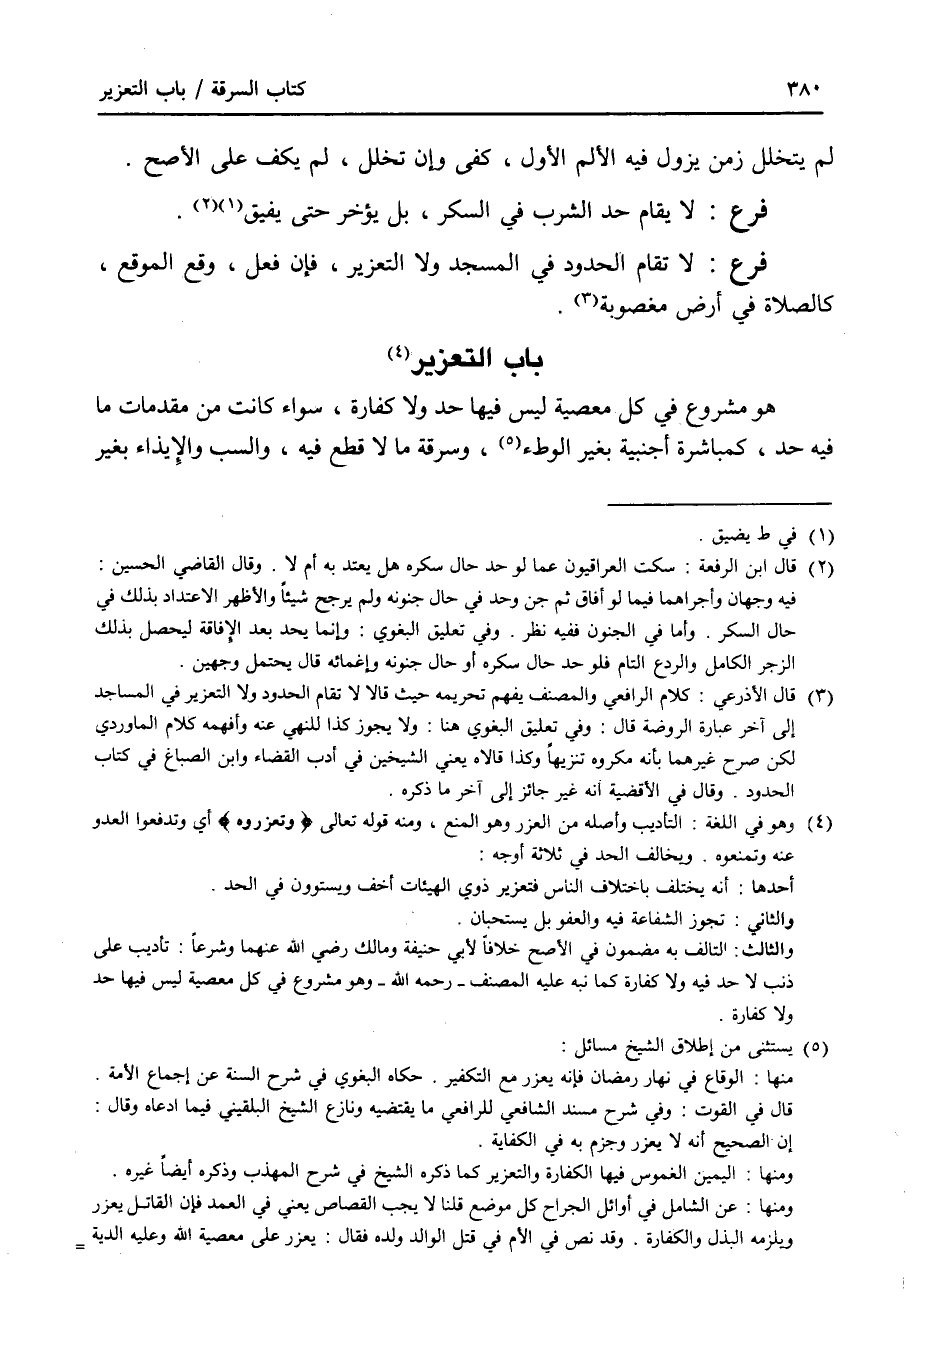 ٣٨٠ كتاب السرقة / باب التعزير
لم يتخلل زمن يزول فيه الألم الأول ، كفى وإن تخلل ، لم يكف على الأصح .
فرع : لا يقام حد الشرب في السكر ، بل يؤخر حتى يفيق(١)(٢) .
فرع : لا تقام الحدود في المسجد ولا التعزير ، فإن فعل ، وقع الموقع ،
كالصلاة في أرض مغصوبة(٣) .
باب التعزير(٤)
هو مشروع في كل معصية ليس فيها حد ولا كفارة ، سواء كانت من مقدمات ما
فيه حد ، كمباشرة أجنبية بغير الوطء(٥) ، وسرقة ما لا قطع فيه ، والسب والإيذاء بغير
(١) في ط يضيق .
(٢) قال ابن الرفعة : سكت العراقيون عما لو حد حال سكره هل يعتد به أم لا . وقال القاضي الحسين :
فيه وجهان وأجراهما فيما لو أفاق ثم جن وحد في حال جنونه ولم يرجح شيئاً والأظهر الاعتداد بذلك في
حال السكر . وأما في الجنون ففيه نظر . وفي تعليق البغوي : وإنما يحد بعد الإفاقة ليحصل بذلك
الزجر الكامل والردع التام فلو حد حال سكره أو حال جنونه وإغمائه قال يحتمل وجهين .
(٣) قال الأذرعي : كلام الرافعي والمصنف يفهم تحريمه حيث قالا لا تقام الحدود ولا التعزير في المساجد
إلى آخر عبارة الروضة قال : وفي تعليق البغوي هنا : ولا يجوز كذا للنهي عنه وأفهمه كلام الماوردي
لكن صرح غيرهما بأنه مكروه تنزيهاً وكذا قالاه يعني الشيخين في أدب القضاء وابن الصباغ في كتاب
الحدود . وقال في الأقضية أنه غير جائز إلى آخر ما ذكره .
(٤) وهو في اللغة : التأديب وأصله من العزر وهو المنع ، ومنه قوله تعالى ﴿ وتعزروه ﴾ أي وتدفعوا العدو
عنه وتمنعوه . ويخالف الحد في ثلاثة أوجه :
أحدها : أنه يختلف باختلاف الناس فتعزير ذوي الهيئات أخف ويستوون في الحد .
والثاني : تجوز الشفاعة فيه والعفو بل يستحبان .
والثالث: التالف به مضمون في الأصح خلافاً لأبي حنيفة ومالك رضي الله عنهما وشرعاً : تأديب على
ذنب لا حد فيه ولا كفارة كما نبه عليه المصنف ـ رحمه الله ـ وهو مشروع في كل معصية ليس فيها حد
ولا كفارة .
(٥) يستثنى من إطلاق الشيخ مسائل :
منها : الوقاع في نهار رمضان فإنه يعزر مع التكفير . حكاه البغوي في شرح السنة عن إجماع الأمة .
قال في القوت : وفي شرح مسند الشافعي للرافعي ما يقتضيه ونازع الشيخ البلقيني فيما ادعاه وقال :
إن الصحيح أنه لا يعزر وجزم به في الكفاية .
ومنها : اليمين الغموس فيها الكفارة والتعزير كما ذكره الشيخ في شرح المهذب وذكره أيضاً غيره .
ومنها : عن الشامل في أوائل الجراح كل موضع قلنا لا يجب القصاص يعني في العمد فإن القاتل يعزر
ويلزمه البذل والكفارة . وقد نص في الأم في قتل الوالد ولده فقال : يعزر على معصية الله وعليه الدية =